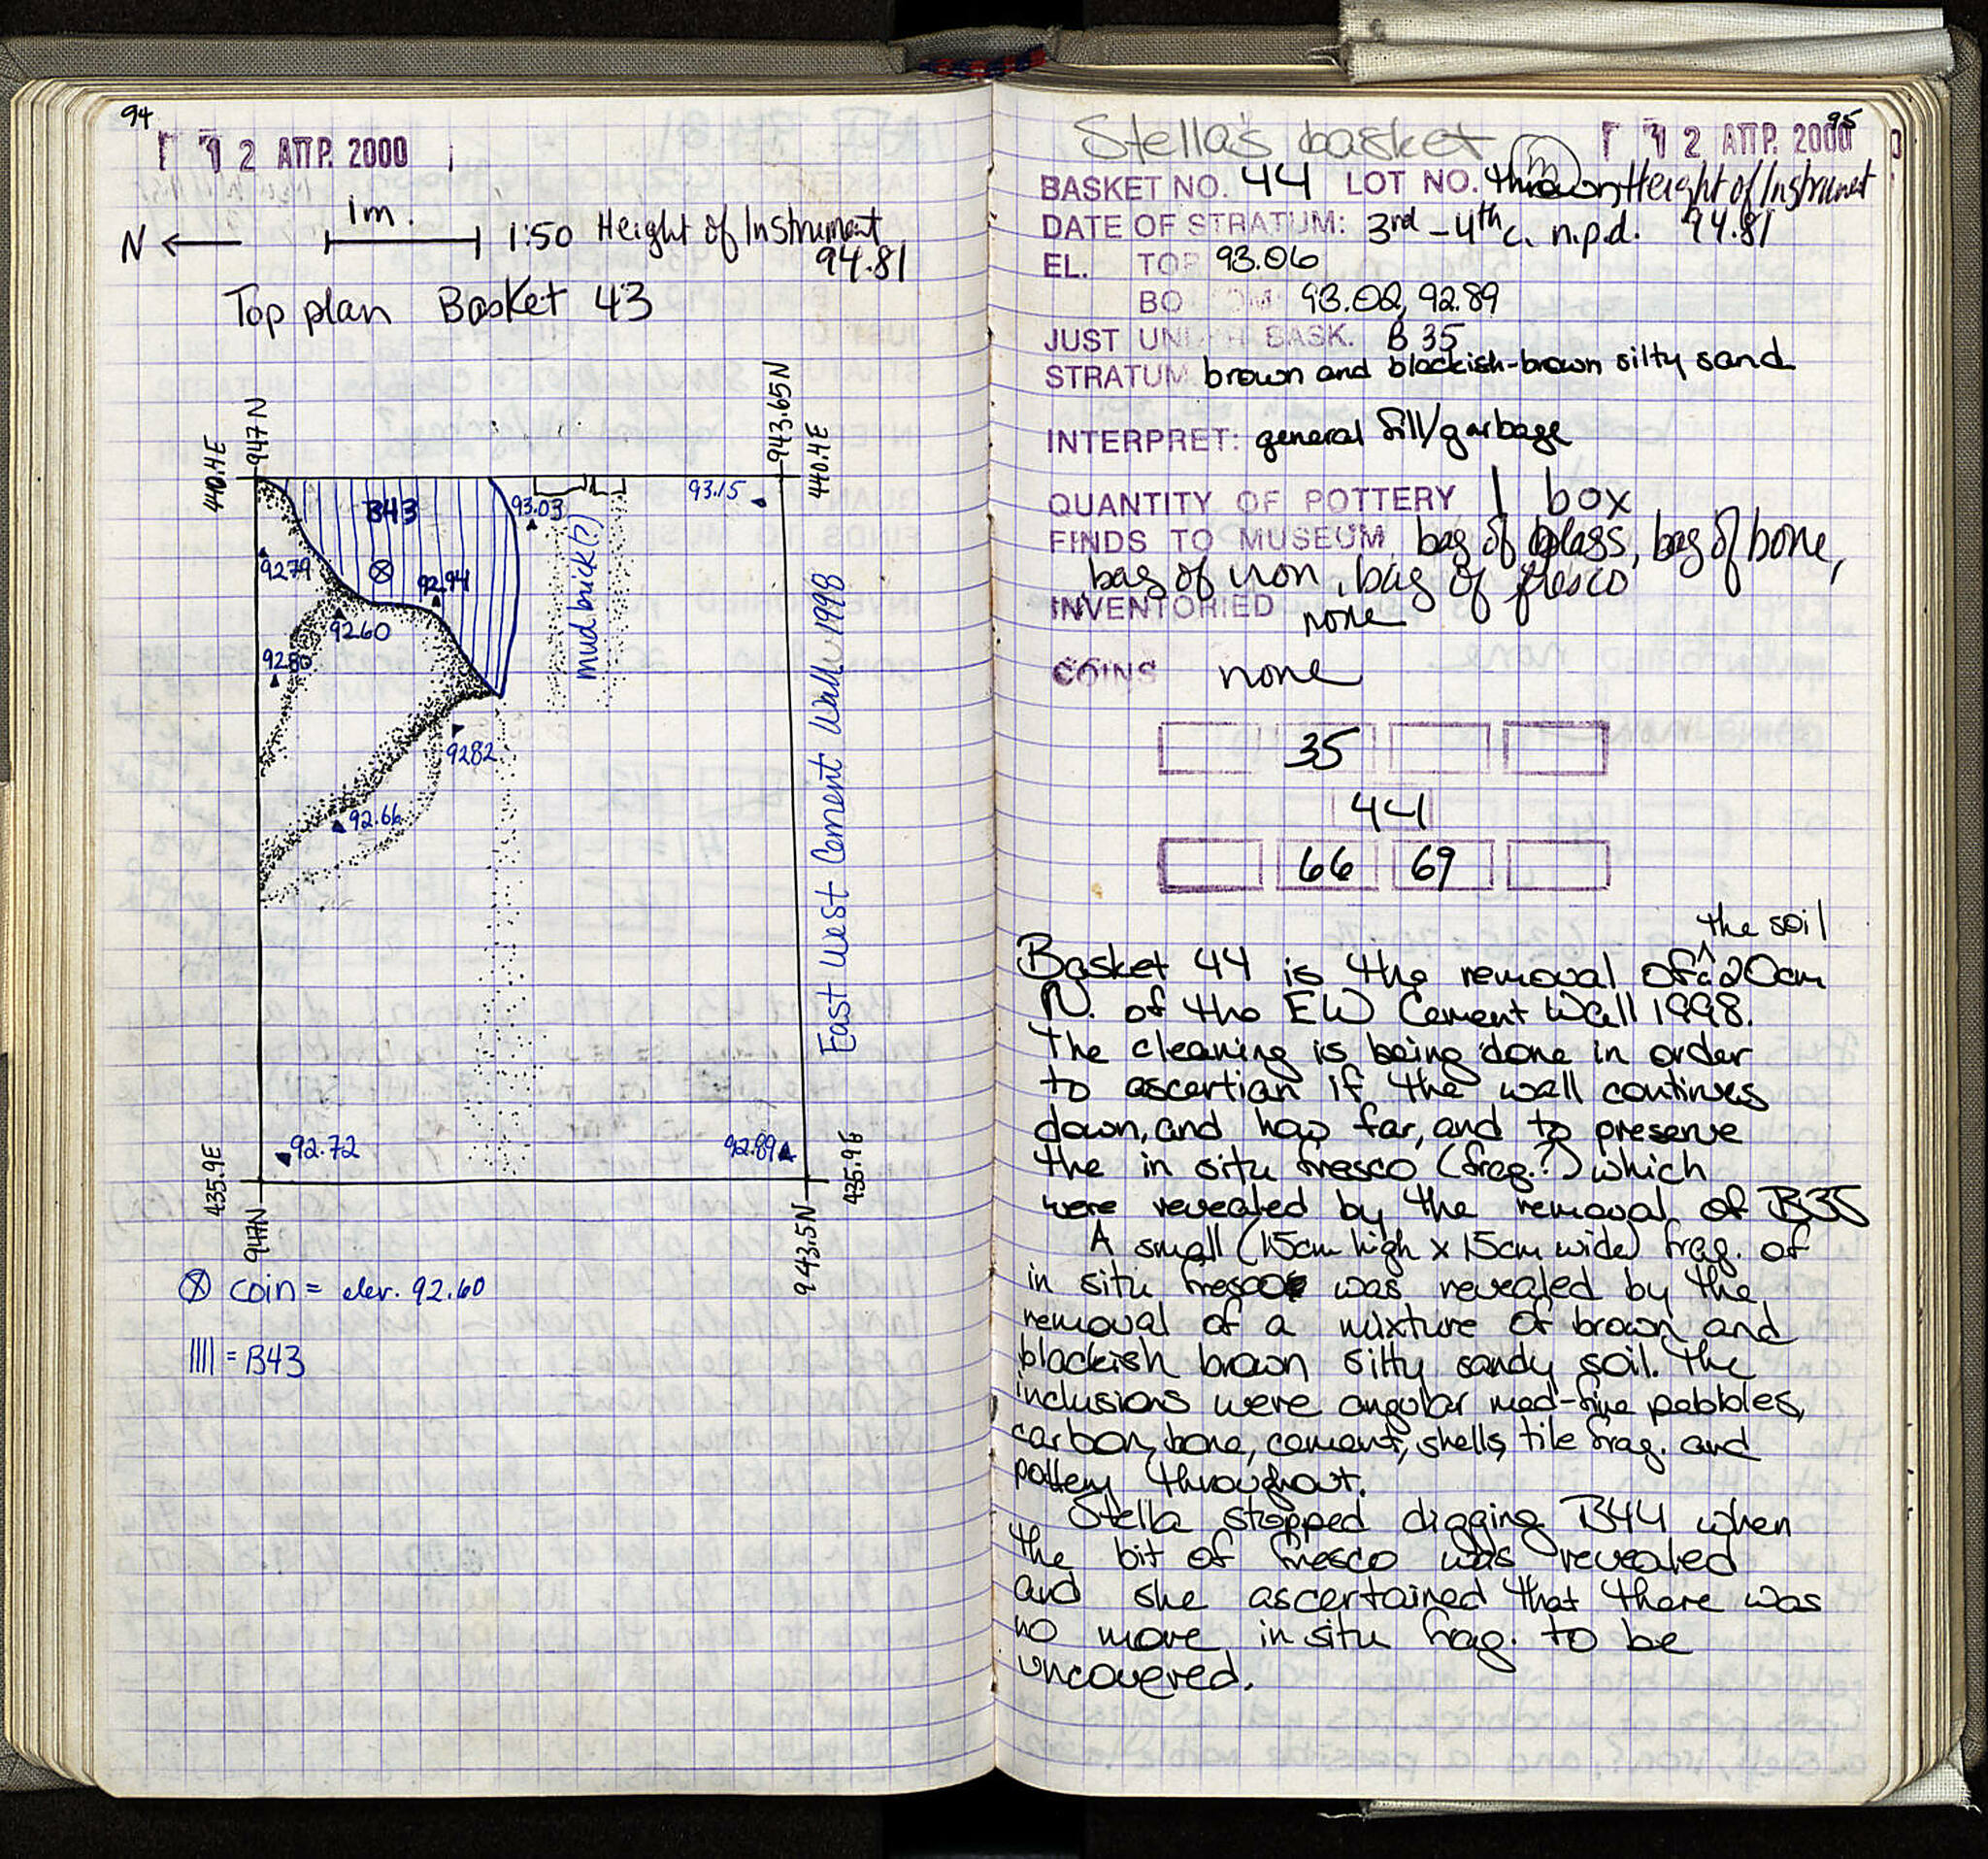 94
12 ΑΠΡ. 2000
1m.
N 1:50 Height of Instrument
94.81
Top plan Basket 43
947 N
943.65N
440.4E
440.4E
B43
93.03
93.15
92.79
92.94
mud brick (?)
92.60
92.80
92.82
92.66
East West Cement Wall 1998
92.72
92.89
435.9E
435.96
947N
943.5N
⊗ coin = elev. 92.60
|||| = B43
95
Stella's basket
12 ΑΠΡ. 2000
BASKET NO. 44 LOT NO. thrown Height of Instrument
DATE OF STRATUM: 3rd-4th c. n.p.d. 94.81
EL. TOP 93.06
BOTTOM: 93.02, 92.89
JUST UNDER BASK. B 35
STRATUM brown and blackish-brown silty sand
INTERPRET: general fill/garbage
QUANTITY OF POTTERY 1 box
FINDS TO MUSEUM bag of glass, bag of bone,
bag of iron, bag of fresco
INVENTORIED none
COINS none
35
44
66 69
the soil
Basket 44 is the removal of ^ c 20cm
N. of the EW Cement Wall 1998.
The cleaning is being done in order
to ascertian if the wall continues
down, and how far, and to preserve
the in situ fresco (frag.?) which
were revealed by the removal of B35
A small (15cm high x 15cm wide) frag. of
in situ fresco was revealed by the
removal of a mixture of brown and
blackish brown silty sandy soil. The
inclusions were angular med-fine pebbles,
carbon, bone, cement, shells, tile frag. and
pottery throughout.
Stella stopped digging B44 when
the bit of fresco was revealed
and she ascertained that there was
no more in situ frag. to be
uncovered.